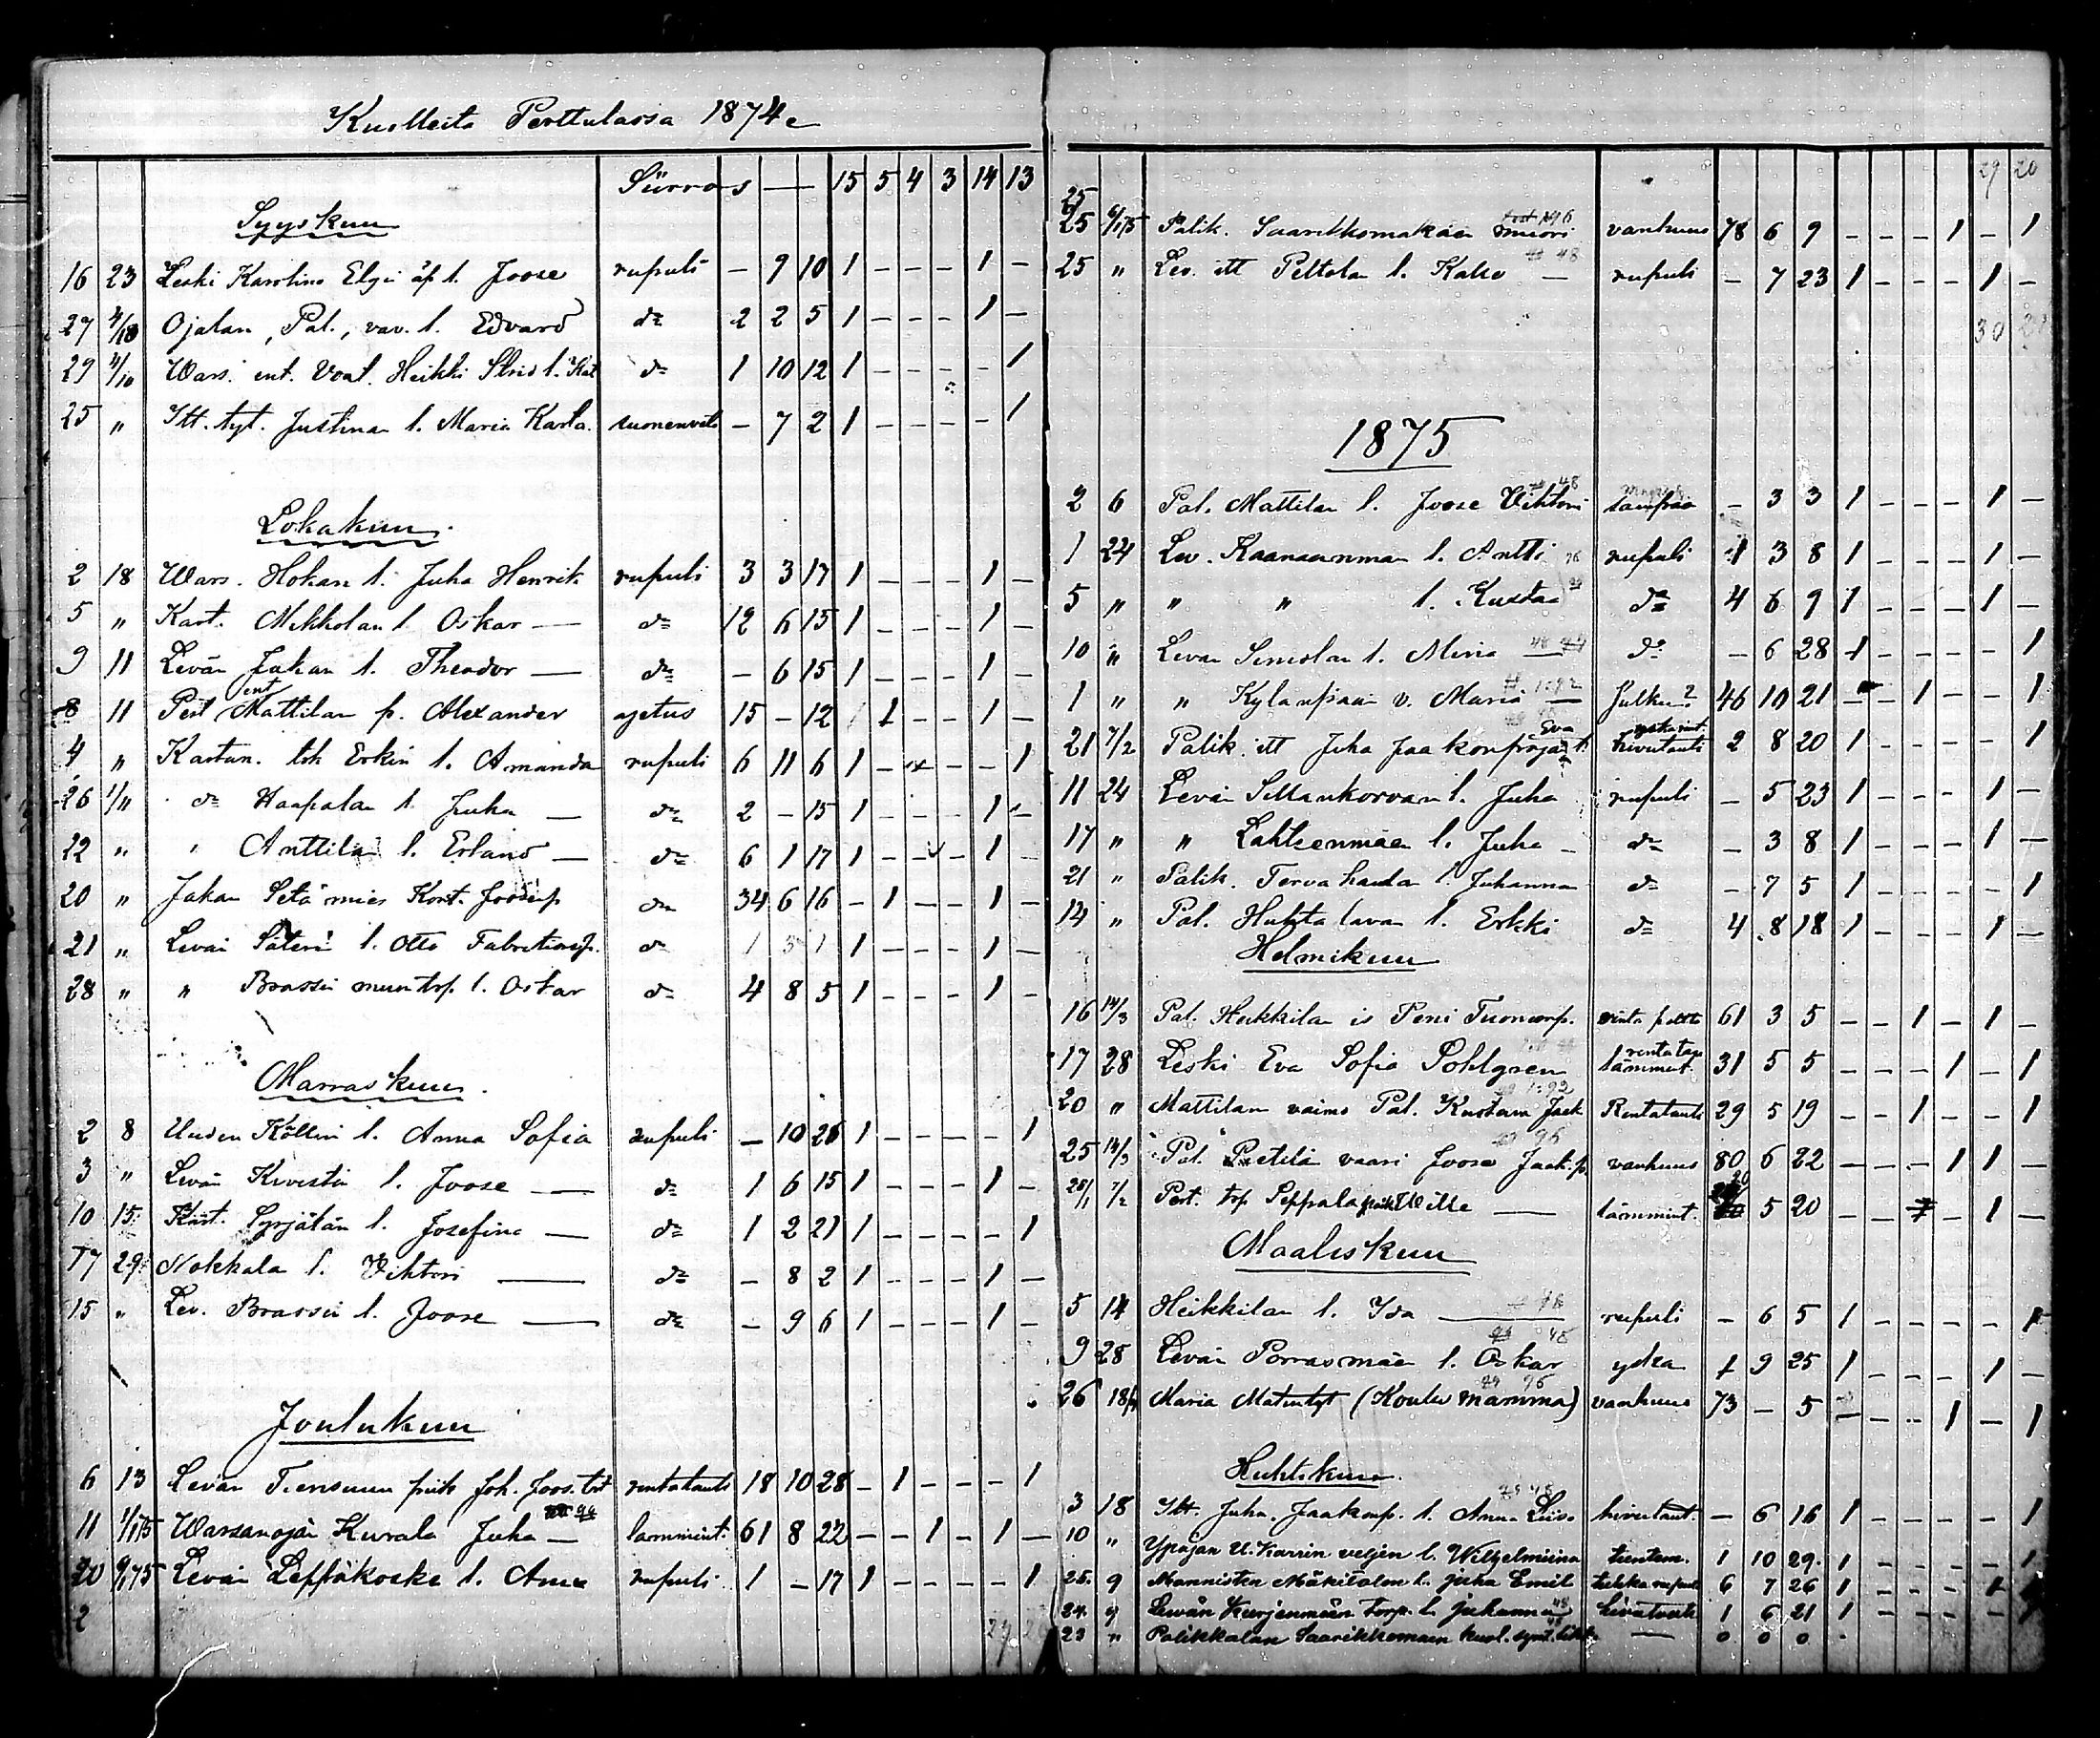 Kuolleita Perttulassa 1874
Siirros — 15 5 4 3 14 13
Syyskuu
16 23 Leski Karolina Elgin äp l. Joose rupuli - 9 10 1 - - - 1 -
27 4/10 Ojalan, Pal., vav. l. Edvard do 2 2 5 1 - - - 1 -
29 4/10 Wars. ent. Vout. Heikki l. do 1 10 12 1 - - - - 1
25 " Itt. tyt. Justinan l. Maria Karla. suonenveto - 7 2 1 - - - - 1
Lokakuu
2 18 Wars. Hokan l. Juha Henrik rupuli 3 3 17 1 - - - 1 -
5 " Kart. Mikkolan l. Oskar — do 12 6 15 1 - - - 1 -
9 11 Levän Jakan l. Theodor — do - 6 15 1 - - - 1 -
8 11 Pert ent Mattilan p. Alexander ajetus 15 - 12 1 - - 1 -
4 " Kartan. Erkin l. Amanda rupuli 6 11 6 1 - - - - 1
26 1/11 do Haapalan l. Juha — do 2 - 15 1 - - - 1 -
22 " " Anttilan l. Erland — do 6 1 17 1 - - - 1 -
20 " Jakan Setä mies Kort. Joosep do 34 6 16 - 1 - - 1 -
21 " Levän Säterin l. Otto do 1 5 1 1 - - - 1 -
28 " " Brassin l. Oskar do 4 8 5 1 - - - 1 -
Marraskuu
2 8 Uuden Köllin l. Anna Sofia rupuli - 10 26 1 - - - - 1
3 " Levän Kivistön l. Joose — do 1 6 15 1 - - - 1 -
10 15 Kart. Syrjätän l. Josefina — do 1 2 21 1 - - - - 1
17 29 Nokkala l. Vihtori — do - 8 2 1 - - - 1 -
15 " Lev. Brassin l. Joose — do - 9 6 1 - - - 1 -
Joulukuu
6 13 Levän Tiensuun piik Joh. Joos. tyt rintatauti 18 10 28 - 1 - - - 1
11 1/1 75 Warsanojan Kurala Juha — lammint. 61 8 22 - - 1 - 1 -
20 9/1 75 Levän Leppäkoske l. Ama rupuli 1 - 17 1 - - - - 1
2
29 20
25
25 6/1 75 Palik. Saarikkomakäen muori vanhuus 78 6 9 - - - 1 - 1
25 " Lev. itt Peltolan l. Kalle — rupuli - 7 23 1 - - - 1 -
30 21
1875
2 6 Pal. Mattilan l. Joose Vihtori - 3 3 1 - - - 1 -
1 24 Lev. Kaanaanmaan l. Antti rupuli 1 3 8 1 - - - 1 -
5 " " " l. Kustaa do 4 6 9 1 - - - 1 -
10 " Levan Simolan l. Mina — do - 6 28 1 - - - - 1
1 " " Kylanpään v. Maria — Julkun? 46 10 21 - - 1 - - 1
21 7/2 Palik. itt Juha Jaakonpojan Eva t. hivutauti 2 8 20 1 - - - - 1
11 24 Levän Sillankorvan l. Juha rupuli - 5 23 1 - - - 1 -
17 " " Lähteenmäen l. Juha - do - 3 8 1 - - - 1 -
21 " Palik. Tervahaudan l. Juhanna do - 7 5 1 - - - - 1
14 " Pal. Huhtalavan l. Erkki do 4 8 18 1 - - - 1 -
Helmikuu
16 14/3 Pal. Heikkilan is Peni Tuomanp. rinta poltto 61 3 5 - - 1 - 1 -
17 28 Leski Eva Sofia Pohlgren lammint. 31 5 5 - - - 1 - 1
20 " Mattilan vaimo Pal. Kustava Jaak. Rintatauti 29 5 19 - - 1 - - 1
25 14/3 Pal. Pietilän vaari Joose Jaak. p. vanhuus 80 6 22 - - - 1 1 -
28/1 7/2 Pert. trp Seppala Wille — lämmint. 20 5 20 - - 1 - 1 -
Maaliskuu
5 14 Heikkilan l. Ida — rupuli - 6 5 1 - - - - 1
9 28 Levän Porrasmäen l. Oskar yskä 1 9 25 1 - - - 1 -
26 18/4 Maria Matintyt (Koulu mamma) vanhuus 73 - 5 - - - 1 - 1
Huhtikuu
3 18 Itt. Juha Jaakonp. l. Anna Liisa hivutaut. - 6 16 1 - - - - 1
10 " Ypäjän U. Karrin veljen l. Wilhelmiina 1 10 29 1 - - - - 1
25. 9 Mannisten Mäkitalon l. Juha Emil tuhka rupuli 6 7 26 1 - - - 1
24. " Levän Kurjenmäen Torp. l. Juhanna hivutauti 1 6 21 1 - - - - 1
23 " Palikkalan Saarikkomäen kuol. synt. — 0 0 0